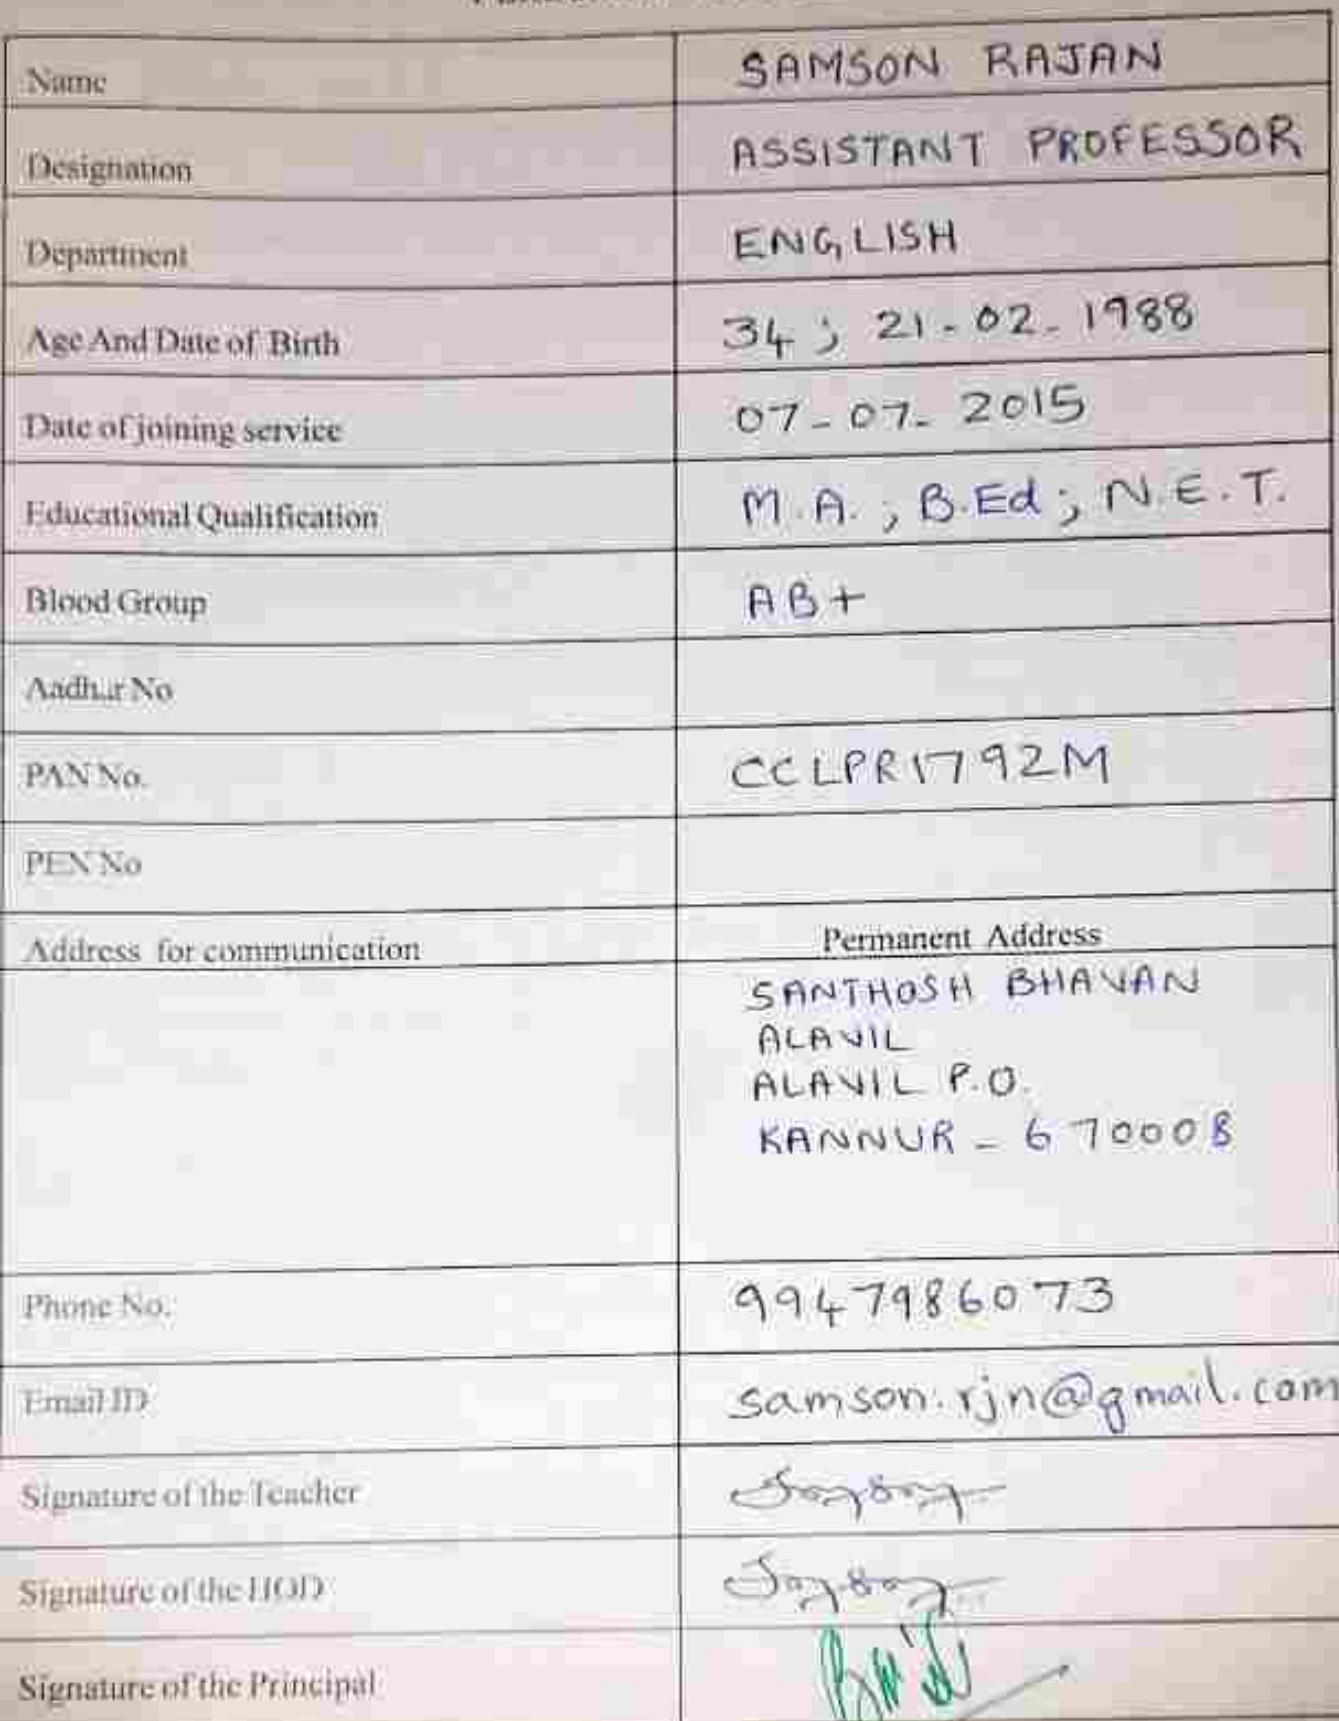 Name SAMSON RAJAN
Designation ASSISTANT PROFESSOR
Department ENGLISH
Age And Date of Birth 34 ; 21-02-1988
Date of joining service 07-07-2015
Educational Qualification M.A. ; B.Ed ; N.E.T.
Blood Group AB+
Aadhar No
PAN No. CCLPR1792M
PEN No
Address for communication Permanent Address
SANTHOSH BHAVAN
ALAVIL
ALAVIL P.O.
KANNUR - 670008
Phone No. 9947986073
Email ID samson.rjn@gmail.com
Signature of the Teacher
Signature of the HOD
Signature of the Principal